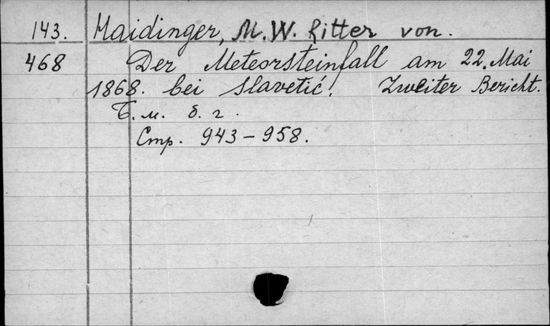 143. Haidinger, M. W. Ritter von.
468 Der Meteorsteinfall am 22. Mai
1868. bei Slavetić. Zweiter Bericht.
Б. м. б. г.
Стр. 943-958.